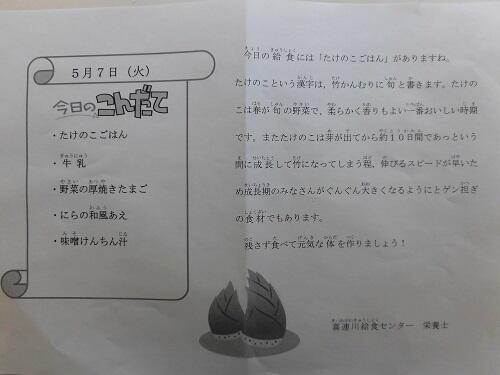 ５月７日（火）
今日のこんだて
・たけのこごはん
・牛乳
・野菜の厚焼きたまご
・にらの和風あえ
・味噌けんちん汁
今日の給食には「たけのこごはん」がありますね。
たけのこという漢字は、竹かんむりに旬と書きます。たけの
こは春が旬の野菜で、柔らかく香りもよい一番おいしい時期
です。またたけのこは芽が出てから約１０日間であっという
間に成長して竹になってしまう程、伸びるスピードが早いた
め成長期のみなさんがぐんぐん大きくなるようにとゲン担ぎ
の食材でもあります。
残さず食べて元気な体を作りましょう！
喜連川給食センター　栄養士